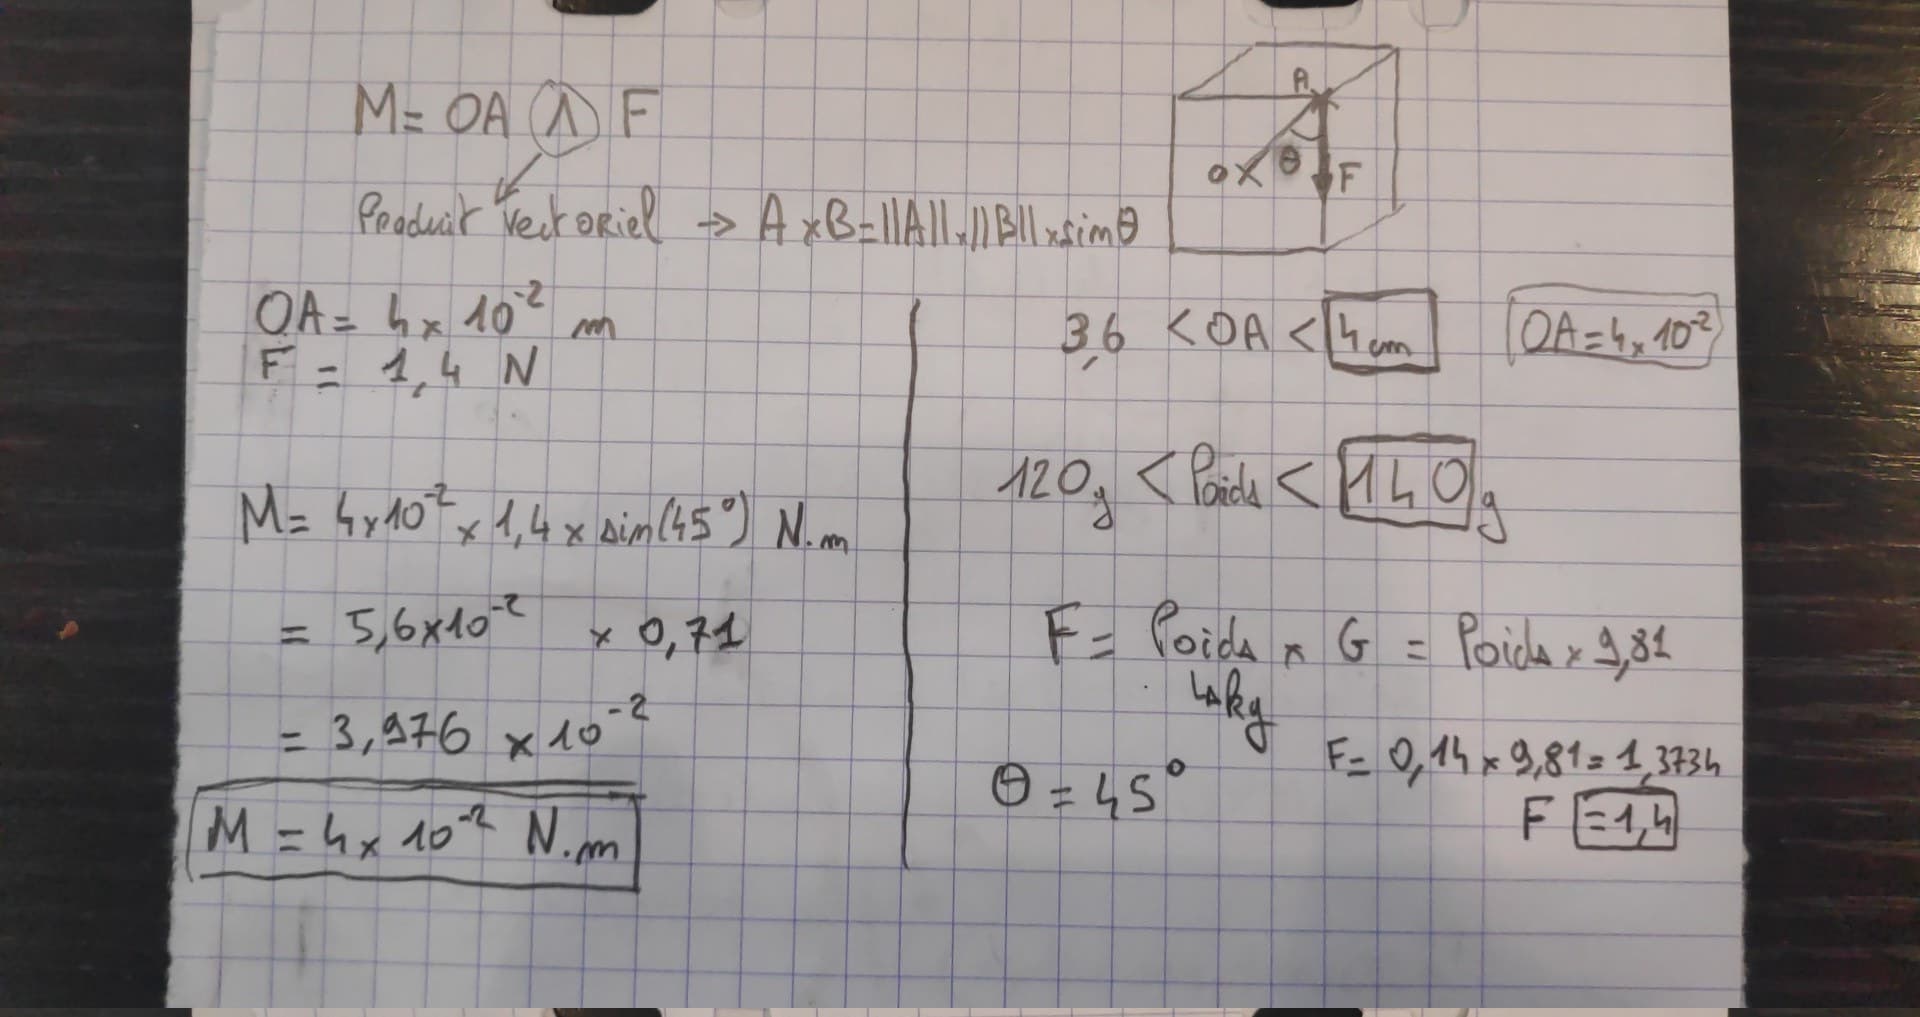 M = OA ∧ F
Produit Vectoriel → A × B = ||A|| × ||B|| × sin θ
A
O
θ
F
OA = 4 × 10⁻² m
F = 1,4 N
M = 4 × 10⁻² × 1,4 × sin(45°) N.m
= 5,6 × 10⁻² × 0,71
= 3,976 × 10⁻²
M = 4 × 10⁻² N.m
3,6 < OA < 4 cm
OA = 4 × 10⁻²
120g < Poids < 140 g
F = Poids × G = Poids × 9,81
↳ kg
F = 0,14 × 9,81 = 1,3734
θ = 45°
F = 1,4